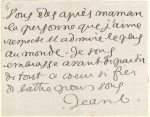 Vous êtes après maman
la personne que j'aime
respecte et admire le plus
au monde. Je vous
embrasse avant de partir
de tout ce coeur si fier
de battre pour vous
Jean